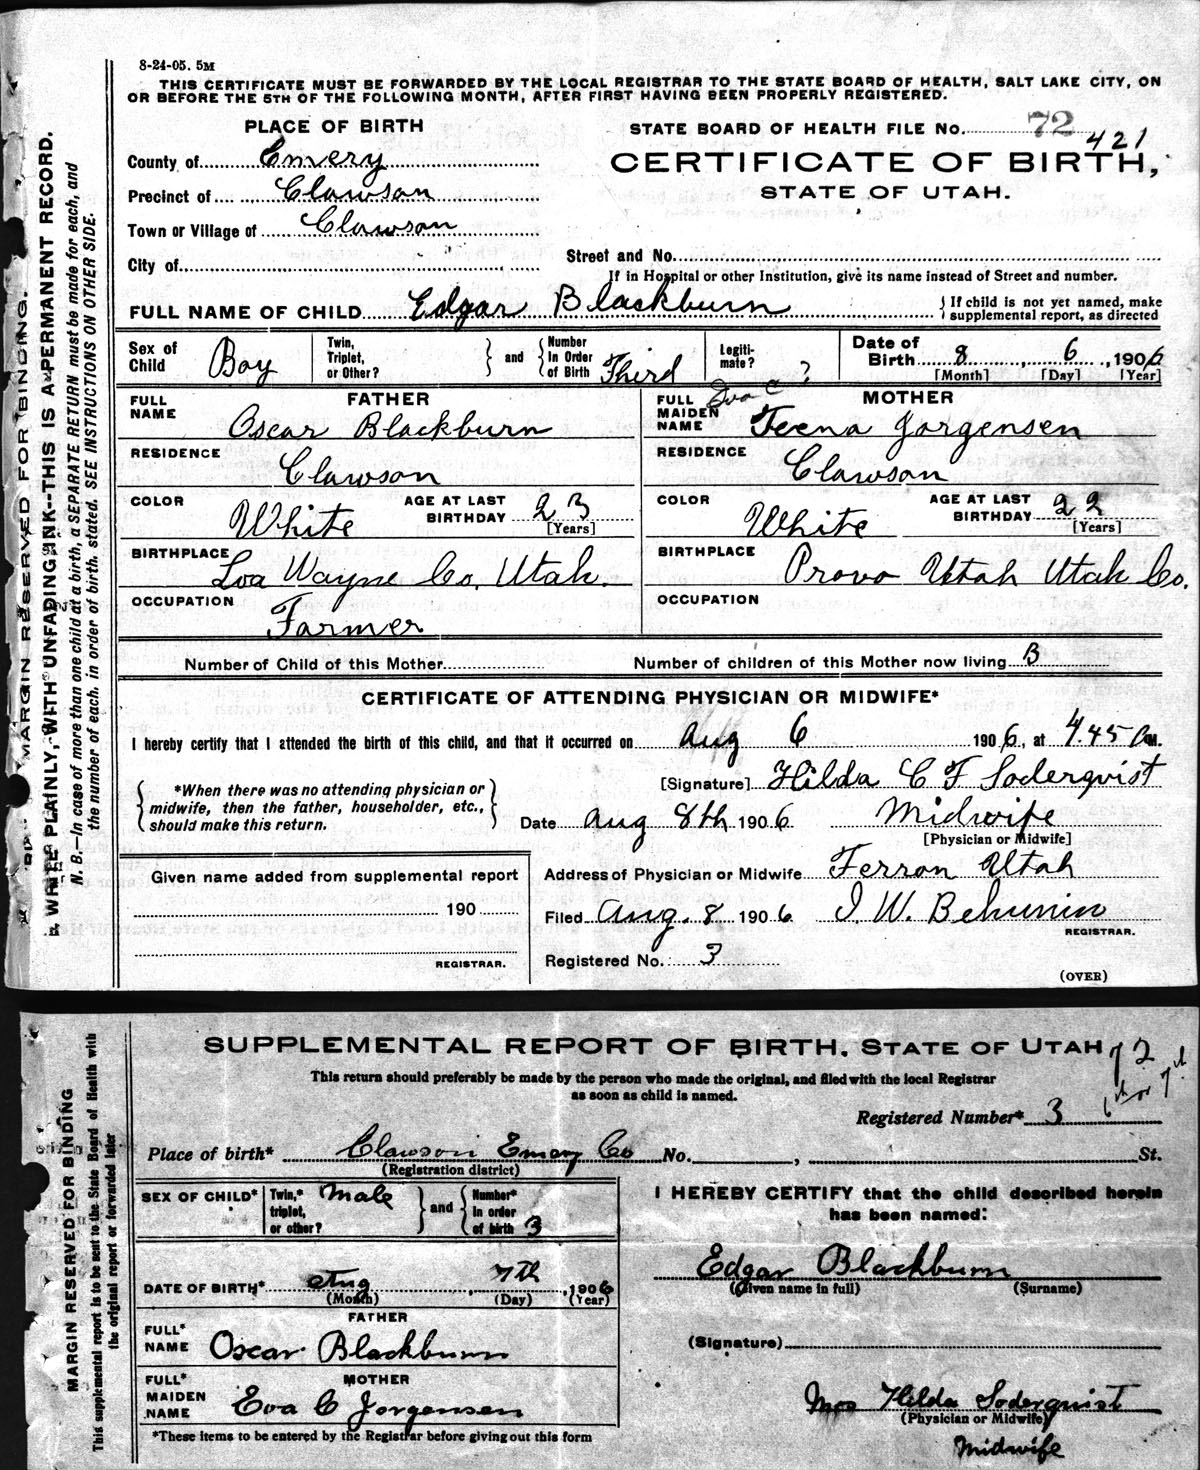 8-24-05. 5M
THIS CERTIFICATE MUST BE FORWARDED BY THE LOCAL REGISTRAR TO THE STATE BOARD OF HEALTH, SALT LAKE CITY, ON
OR BEFORE THE 5TH OF THE FOLLOWING MONTH, AFTER FIRST HAVING BEEN PROPERLY REGISTERED.
PLACE OF BIRTH
STATE BOARD OF HEALTH FILE No. 72
421
County of Emery
CERTIFICATE OF BIRTH,
Precinct of Clawson
STATE OF UTAH.
Town or Village of Clawson
City of
Street and No.
If in Hospital or other Institution, give its name instead of Street and number.
FULL NAME OF CHILD Edgar Blackburn
{If child is not yet named, make
supplemental report, as directed
Sex of Child Boy
Twin, Triplet, or Other?
} and {
Number In Order of Birth Third
Legiti-mate? ?
Date of Birth 8, 6, 1906
[Month] [Day] [Year]
FATHER
FULL NAME Oscar Blackburn
RESIDENCE Clawson
COLOR White
AGE AT LAST BIRTHDAY 23
[Years]
BIRTHPLACE Loa Wayne Co. Utah.
OCCUPATION Farmer
MOTHER
Eva C
FULL MAIDEN NAME Teena Jorgensen
RESIDENCE Clawson
COLOR White
AGE AT LAST BIRTHDAY 22
[Years]
BIRTHPLACE Provo Utah Utah Co.
OCCUPATION
Number of Child of this Mother
Number of children of this Mother now living 3
CERTIFICATE OF ATTENDING PHYSICIAN OR MIDWIFE*
I hereby certify that I attended the birth of this child, and that it occurred on Aug 6 1906, at 4.45 A M.
[Signature] Hilda C F Soderqvist
{*When there was no attending physician or
midwife, then the father, householder, etc.,
should make this return.}
Date Aug 8th 1906 Midwife
[Physician or Midwife]
Given name added from supplemental report
190
REGISTRAR.
Address of Physician or Midwife Ferron Utah
Filed Aug. 8 1906 I W. Behunin
REGISTRAR.
Registered No. 3
(OVER)
MARGIN RESERVED FOR BINDING.
WRITE PLAINLY, WITH UNFADING INK--THIS IS A PERMANENT RECORD.
N. B.—In case of more than one child at a birth, a SEPARATE RETURN must be made for each, and
the number of each, in order of birth, stated. SEE INSTRUCTIONS ON OTHER SIDE.
SUPPLEMENTAL REPORT OF BIRTH. STATE OF UTAH
72
This return should preferably be made by the person who made the original, and filed with the local Registrar
as soon as child is named.
6th or 7th
Registered Number* 3
Place of birth* Clawson Emery Co No. , St.
(Registration district)
SEX OF CHILD*
Twin,* triplet, or other? Male
} and {
Number* In order of birth 3
DATE OF BIRTH* Aug 7th, 1906
(Month) (Day) (Year)
FATHER
FULL* NAME Oscar Blackburn
MOTHER
FULL* MAIDEN NAME Eva C Jorgensen
*These items to be entered by the Registrar before giving out this form
I HEREBY CERTIFY that the child described herein
has been named:
Edgar Blackburn
(Given name in full) (Surname)
(Signature)
Mrs Hilda Soderquist
(Physician or Midwife)
Midwife
MARGIN RESERVED FOR BINDING
This supplemental report is to be sent to the State Board of Health with
the original report or forwarded later